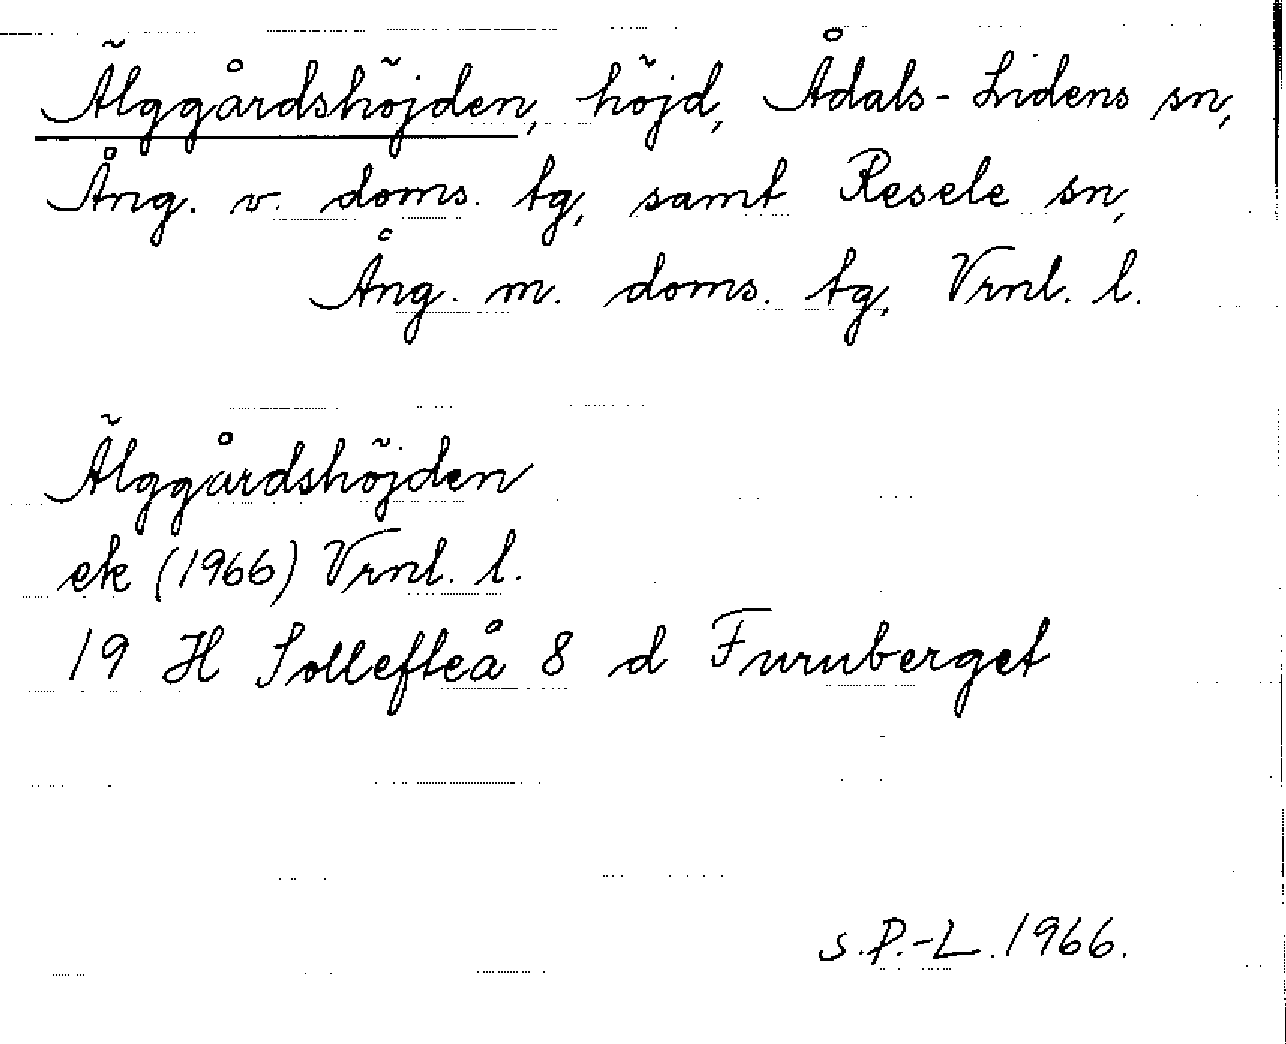 Älggårdshöjden, höjd, Ådals-Lidens sn,
Ång. v. doms. tg, samt Resele sn,
Ång. m. doms. tg, Vrnl. l.
Älggårdshöjden
ek (1966) Vrnl. l.
19 H Sollefteå 8 d Furuberget
S.P.-L. 1966.